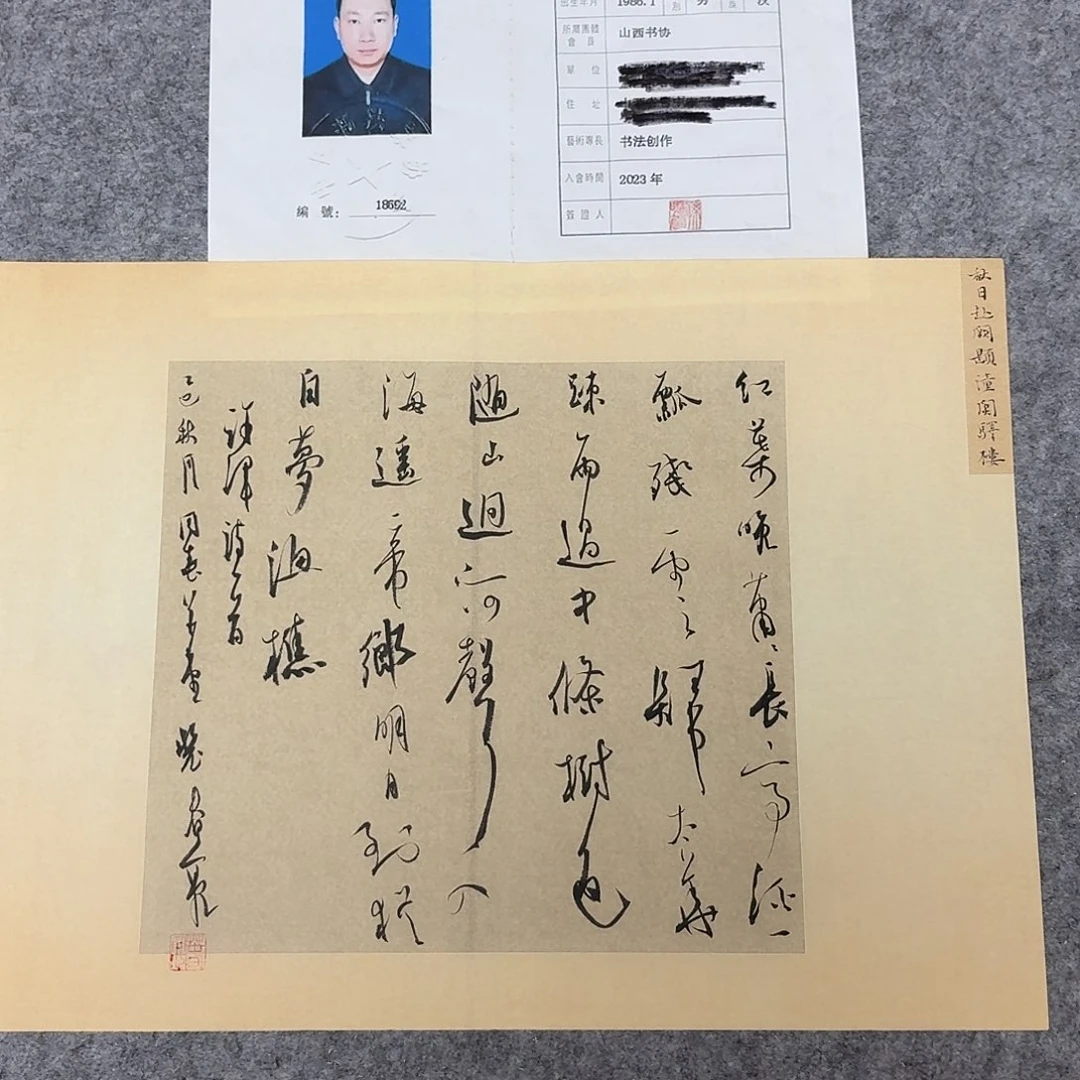 1986.1
所屬團體
會員
山西书协
單位
住址
藝術專長 书法创作
入會時間 2023年
簽證人
編號: 18692
秋日赴闕題潼関驛樓
红葉晚蕭〻長亭酒一
瓢残雲歸太華
踈雨過中條樹色
随山迥河聲入
海遥帝鄉明日到猶
自夢渔樵
許渾詩一首
乙巳秋月